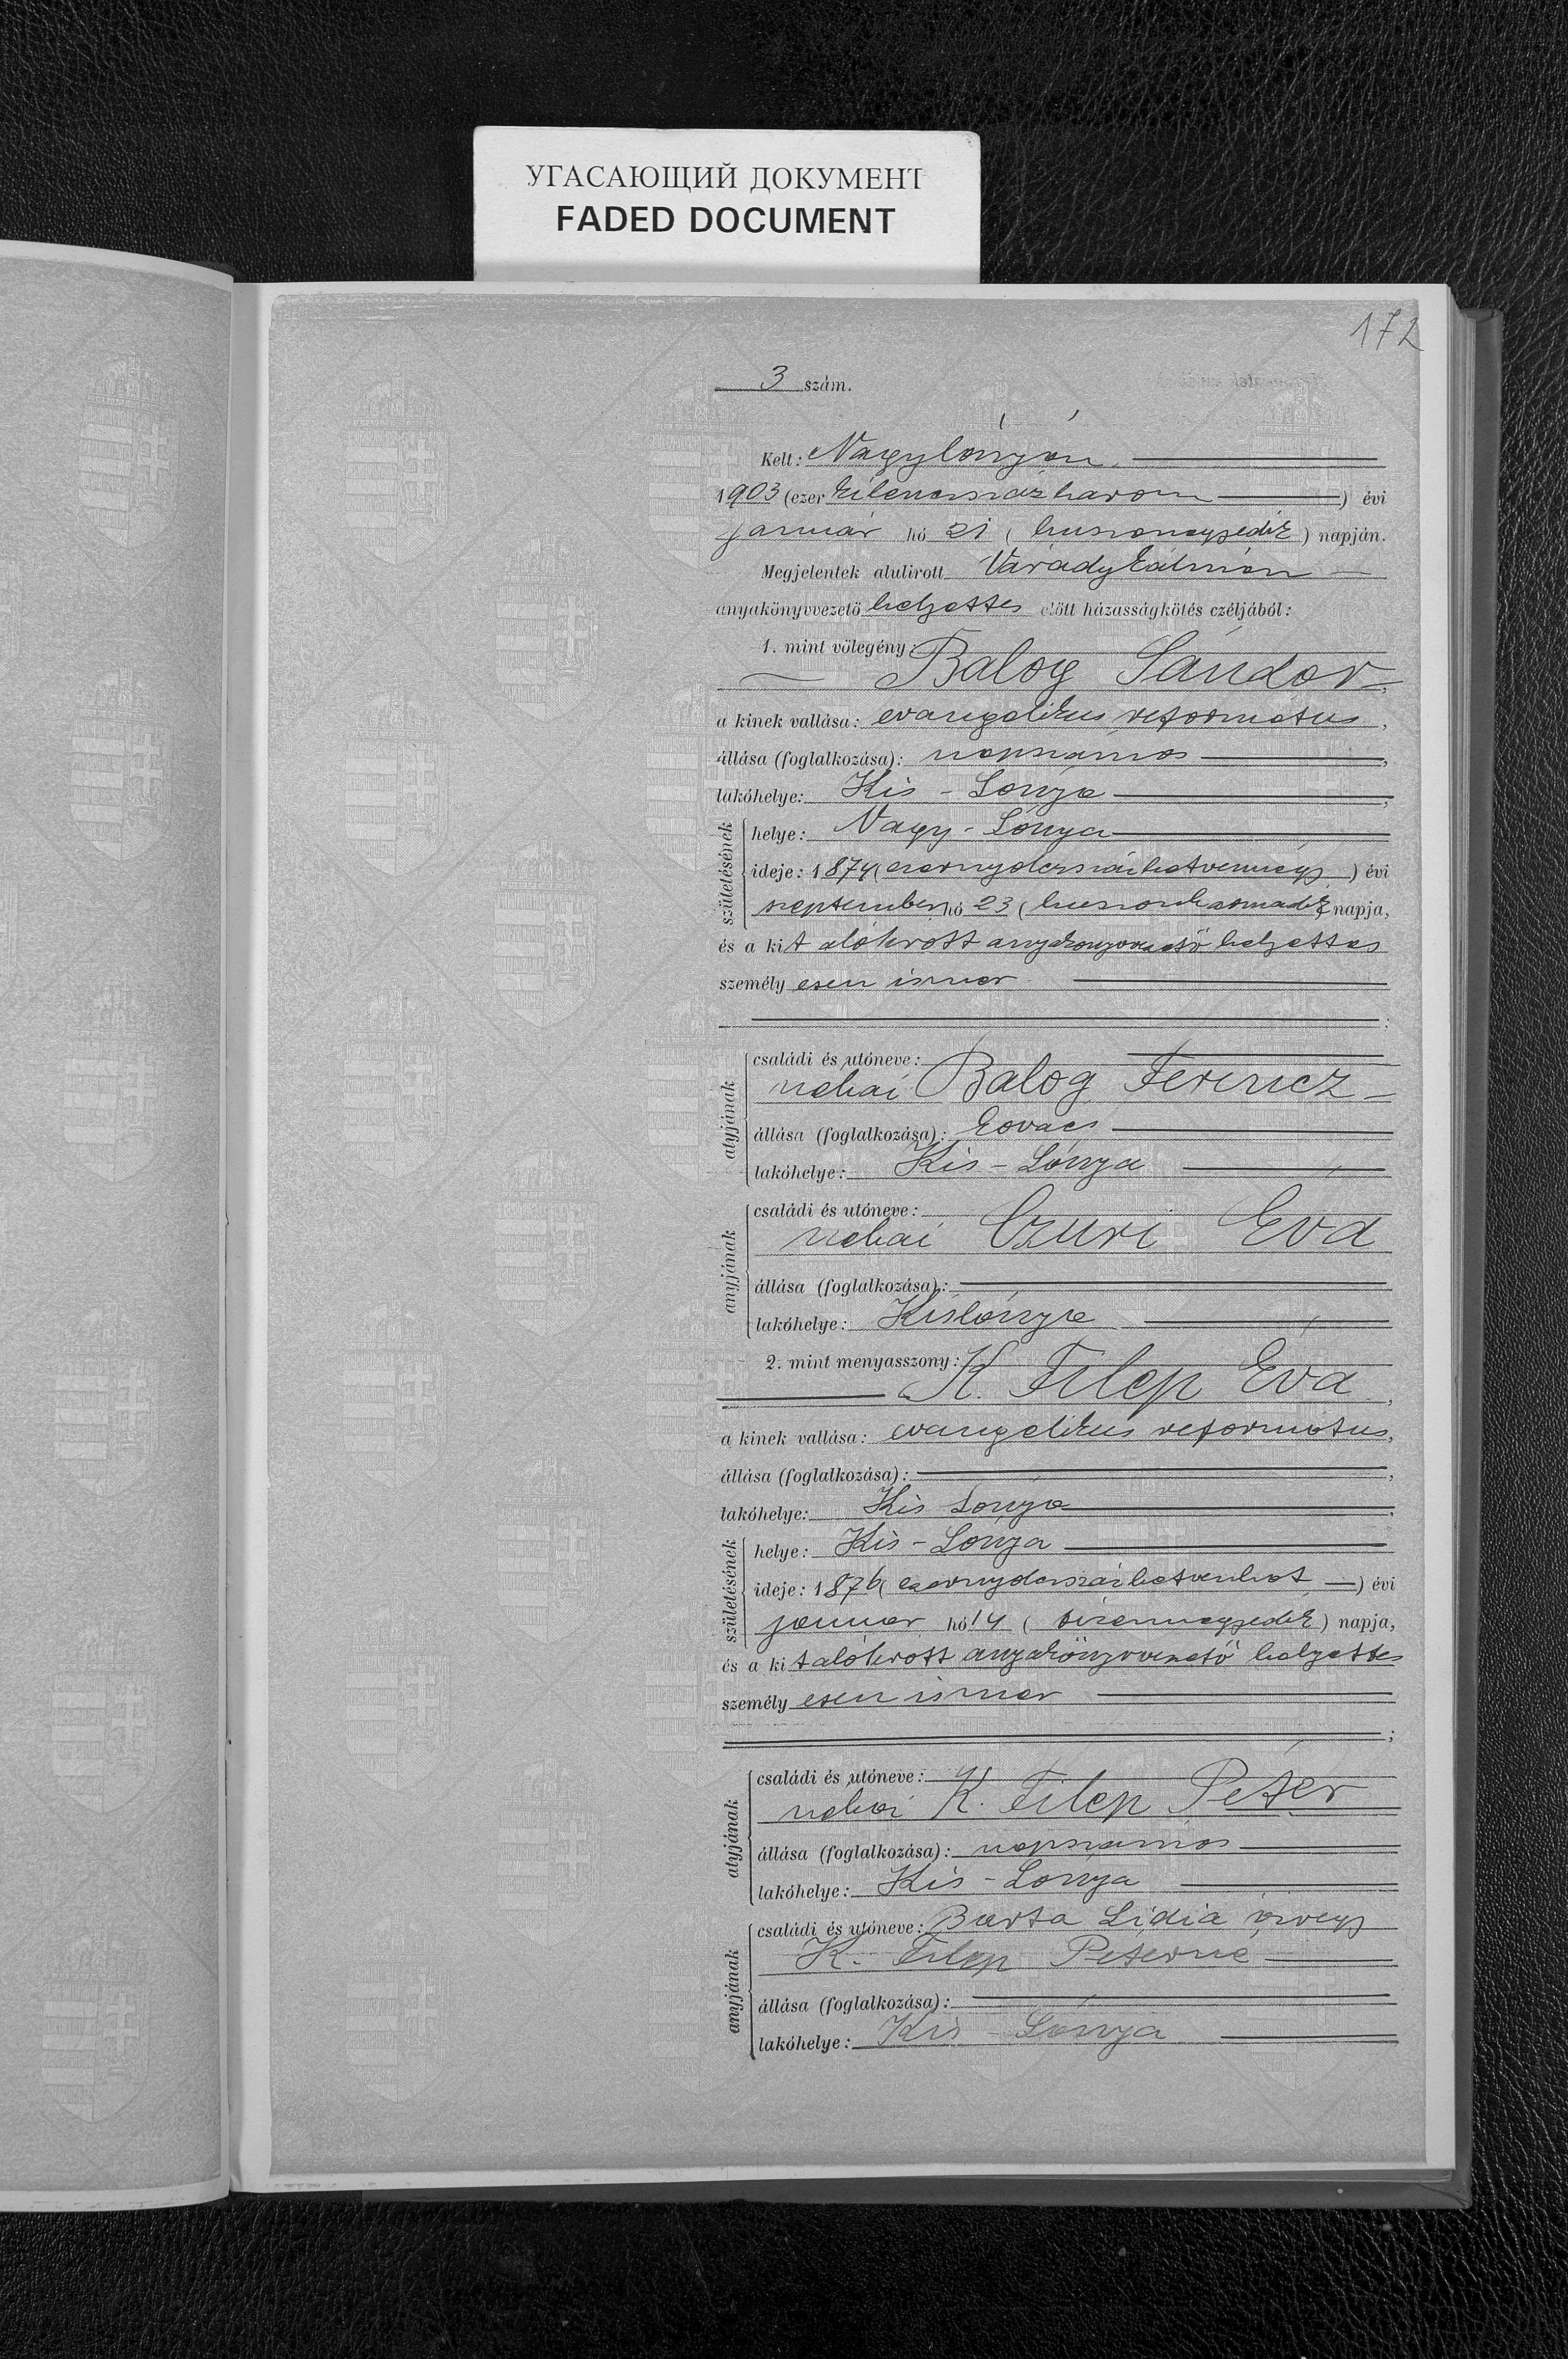 УГАСАЮЩИЙ ДОКУМЕНТ
FADED DOCUMENT
172
3 szám.
Kelt: Nagylónyán
1903 (ezer kilenczszázhárom) évi
január hó 21 (huszonegyedik) napján.
Megjelentek alulirott Várady Kálmán
anyakönyvvezető helyettes előtt házasságkötés czéljából:
1. mint vőlegény:
Balog Sándor,
a kinek vallása: evangelikus református,
állása (foglalkozása): napszámos,
lakóhelye: Kis-Lónya,
születésének
helye: Nagy-Lónya
ideje: 1874 (ezernyolczszázhetvennégy) évi
szeptember hó 23 (huszonharmadik) napja,
és a kit alólirott anyakönyvvezető helyettes
személyesen ismer
;
atyjának
családi és utóneve:
néhai Balog Ferencz
állása (foglalkozása): kovács
lakóhelye: Kis-Lónya
anyjának
családi és utóneve:
néhai Czuri Éva
állása (foglalkozása):
lakóhelye: Kislónya
2. mint menyasszony:
K. Filep Éva,
a kinek vallása: evangelikus református,
állása (foglalkozása):,
lakóhelye: Kis Lónya,
születésének
helye: Kis-Lónya
ideje: 1876 (ezernyolczszázhetvenhat) évi
január hó 14 (tizennegyedik) napja,
és a kit alólirott anyakönyvvezető helyettes
személyesen ismer
;
atyjának
családi és utóneve:
néhai K. Filep Péter
állása (foglalkozása): napszámos
lakóhelye: Kis-Lónya
anyjának
családi és utóneve: Barta Lidia özvegy
K. Filep Péterné
állása (foglalkozása):
lakóhelye: Kis-Lónya